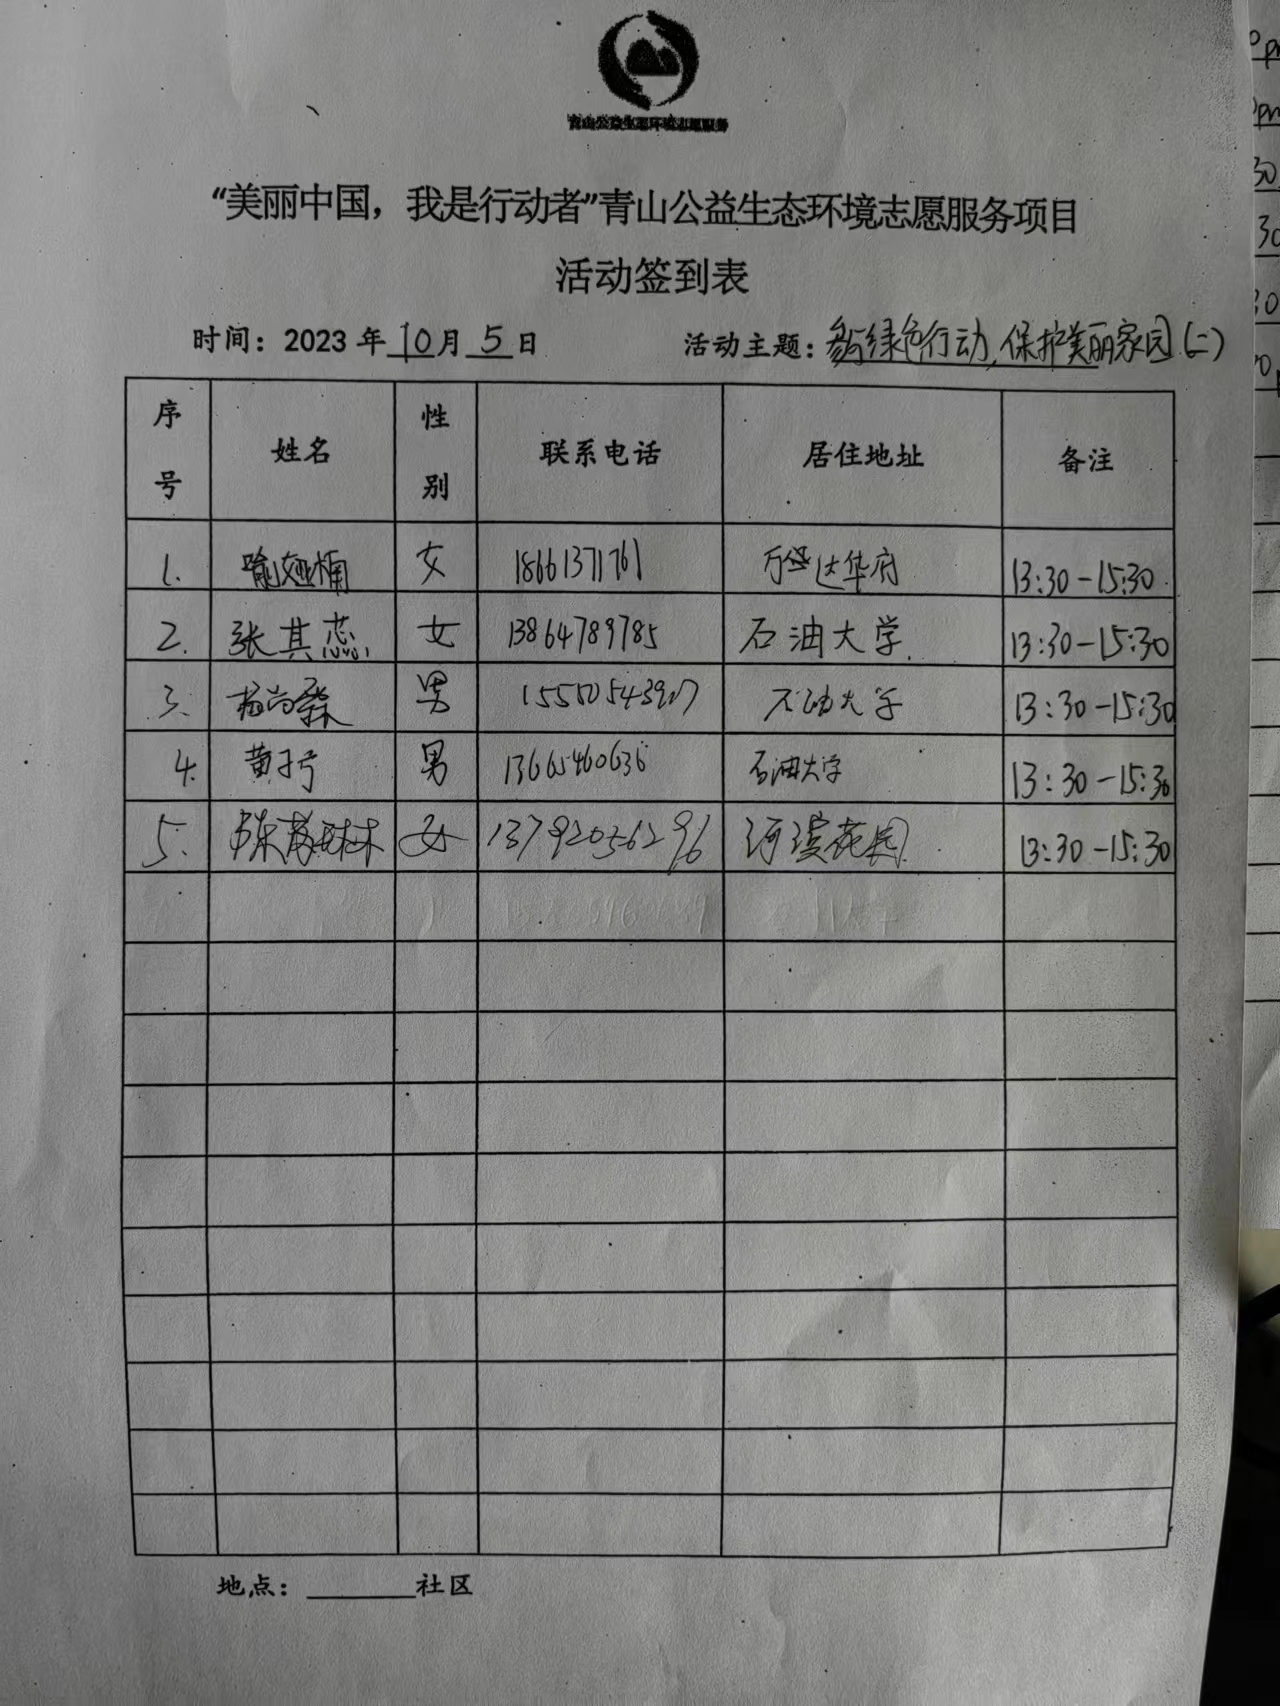 青山公益生态环境志愿服务
“美丽中国，我是行动者”青山公益生态环境志愿服务项目
活动签到表
时间：2023年10月5日 活动主题：参与绿色行动，保护美丽家园(二)
序号 姓名 性别 联系电话 居住地址 备注
1. 女 18661371761 万达华府 13:30-15:30
2. 张其蕊 女 13864789785 石油大学. 13:30-15:30
3. 杨尚霖 男 石油大学 13:30-15:30
4. 黄子宁 男 13665460636 石油大学 13:30-15:30
5. 女 13792056296 河滨花园 13:30-15:30
地点：______社区